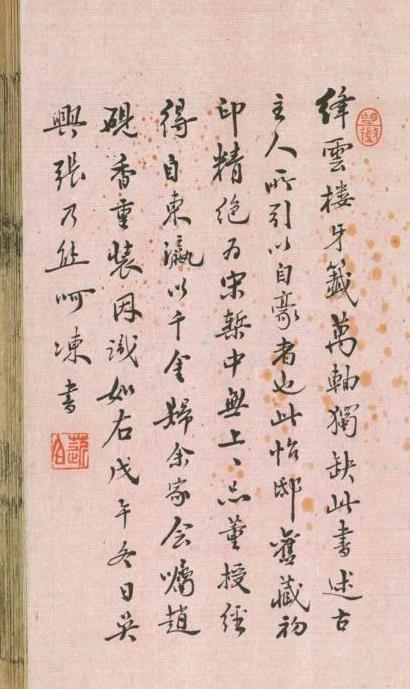 絳雲楼牙籤萬軸獨缺此書述古
主人所引以自豪者也此怡邸舊藏初
印精絶為宋槧中無上上品董授經
得自東瀛以千金歸余家会囑趙
硯香重裝因識如右戊午冬日吳
興張乃熊呵凍書